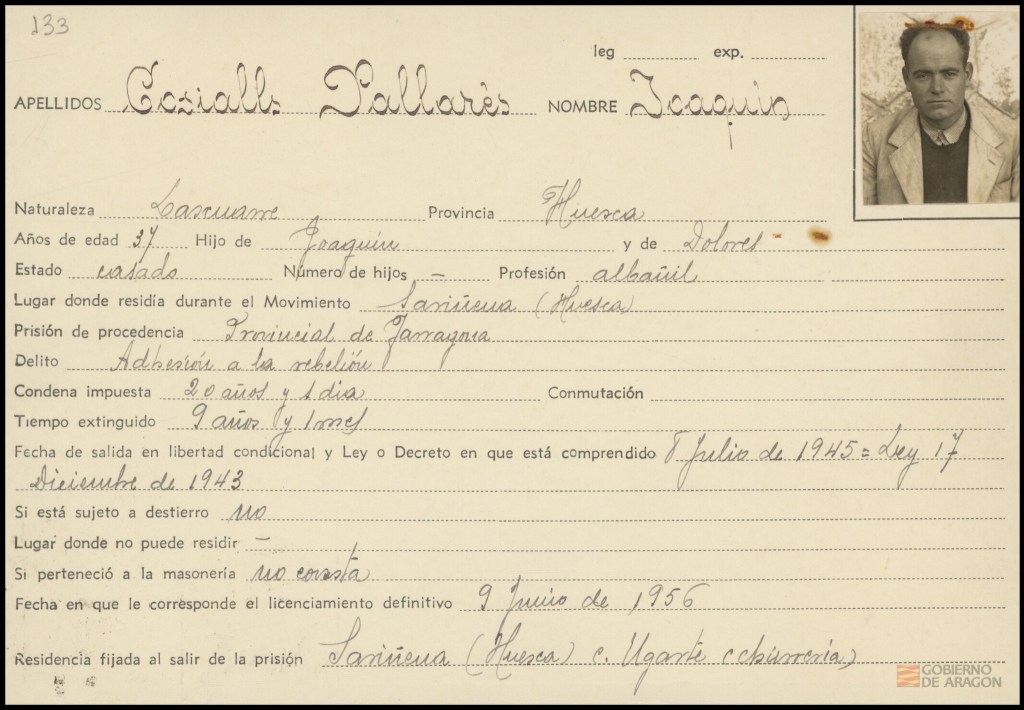 133
leg exp.
APELLIDOS Cosialls Pallarés NOMBRE Joaquin
Naturaleza Lascuarre Provincia Huesca
Años de edad 37 Hijo de Joaquín y de Dolores
Estado casado Número de hijos – Profesión albañil
Lugar donde residía durante el Movimiento Sariñena (Huesca)
Prisión de procedencia Provincial de Tarragona
Delito Adhesión a la rebelión
Condena impuesta 20 años y 1 dia Conmutación
Tiempo extinguido 9 años y 1 mes
Fecha de salida en libertad condicional y Ley o Decreto en que está comprendido 8 Julio de 1945 = Ley 17
Diciembre de 1943
Si está sujeto a destierro no
Lugar donde no puede residir –
Si perteneció a la masonería no consta
Fecha en que le corresponde el licenciamiento definitivo 9 Junio de 1956
Residencia fijada al salir de la prisión Sariñena (Huesca) c. Ugarte (churrería)
GOBIERNO
DE ARAGON